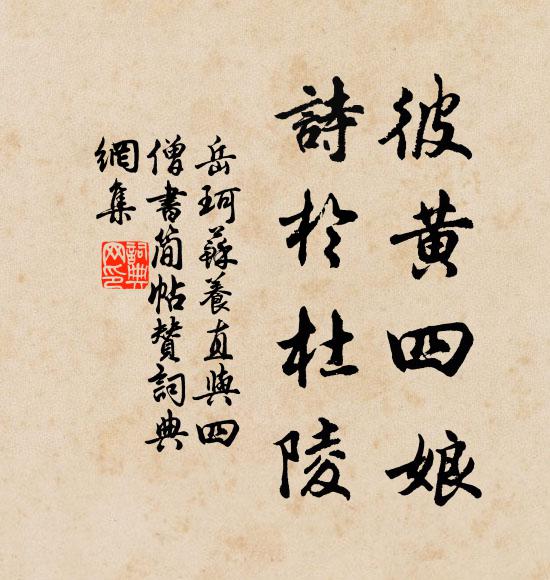 彼黄四娘
詩於杜陵
岳珂蘇養直與四
僧書簡帖贊詞典
網集
詞典網印